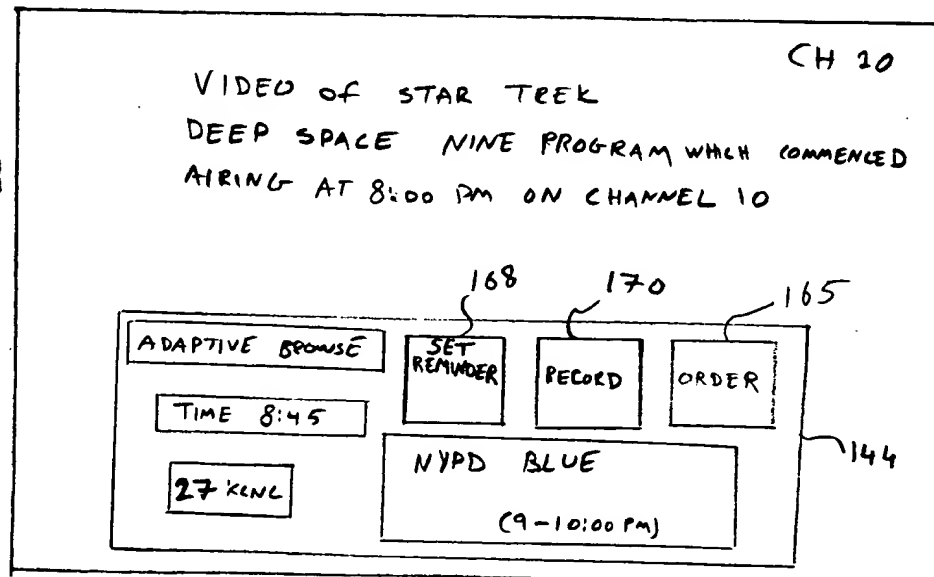 CH 10
VIDEO of STAR TREK
DEEP SPACE NINE PROGRAM WHICH COMMENCED
AIRING AT 8:00 PM ON CHANNEL 10
168
170
165
ADAPTIVE BROWSE
SET
REMINDER
RECORD
ORDER
TIME 8:45
144
NYPD BLUE
27
(9-10:00 PM)